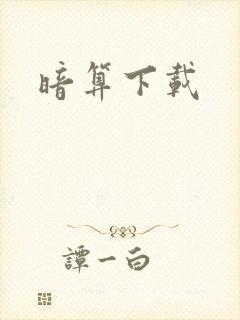 暗算下載
譚一白